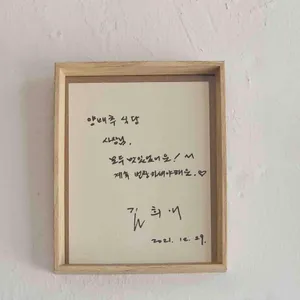 양배추 식당
사장님,
모두 맛있었어요! ~
계속 번창하세야해요.♡
김희애
2021. 12. 29.